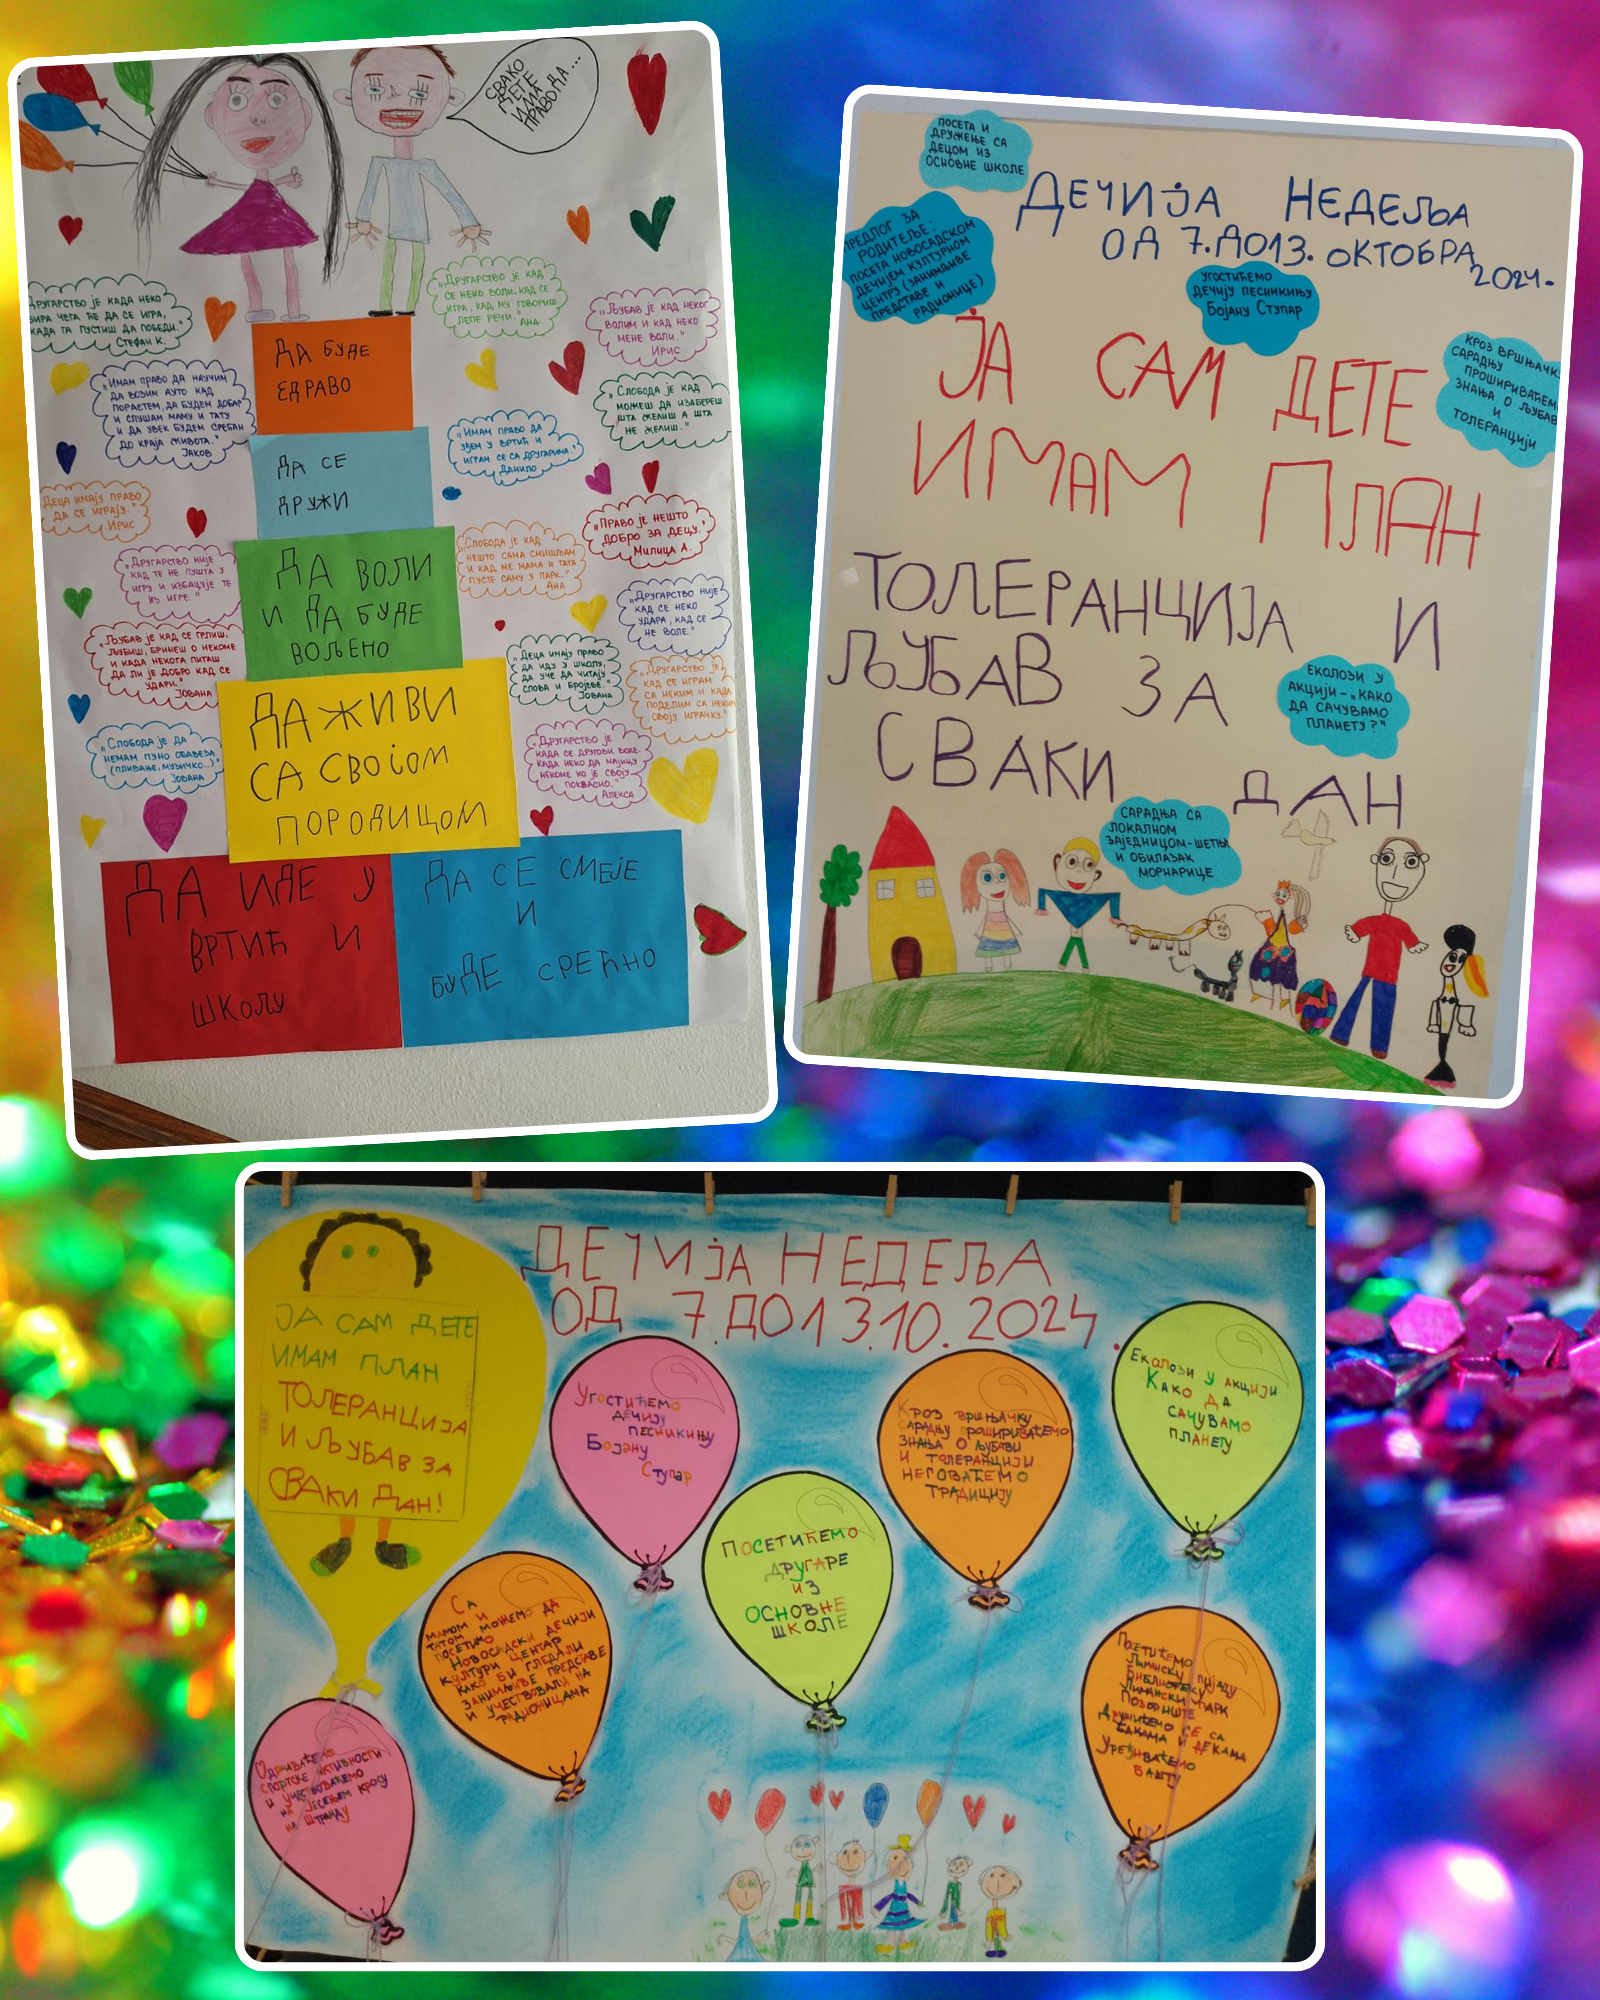 СВАКО
ДЕТЕ
ИМА
ПРАВО ДА...
ДРУГАРСТВО ЈЕ КАДА НЕКО
БИРА ЧЕГА ЋЕ ДА СЕ ИГРА,
КАДА ГА ПУСТИШ ДА ПОБЕДИ."
СТЕФАН К.
„ДРУГАРСТВО ЈЕ КАД
СЕ НЕКО ВОЛИ, КАД СЕ
ИГРА, КАД МУ ГОВОРИШ
ЛЕПЕ РЕЧИ."
АНА
„ЉУБАВ ЈЕ КАД НЕКОГ
ВОЛИМ И КАД НЕКО
МЕНЕ ВОЛИ."
ИРИС
„ИМАМ ПРАВО ДА НАУЧИМ
ДА ВОЗИМ АУТО КАД
ПОРАСТЕМ, ДА БУДЕМ ДОБАР
И СЛУШАМ МАМУ И ТАТУ
И ДА УВЕК БУДЕМ СРЕЋАН
ДО КРАЈА ЖИВОТА."
ЈАКОВ
„ИМАМ ПРАВО ДА
ИДЕМ У ВРТИЋ И
ИГРАМ СЕ СА ДРУГАРИМА."
ДАНИЛО
„СЛОБОДА ЈЕ КАД
МОЖЕШ ДА ИЗАБЕРЕШ
ШТА ЖЕЛИШ А ШТА
НЕ ЖЕЛИШ."
ДЕЦА ИМАЈУ ПРАВО
ДА СЕ ИГРАЈУ."
ИРИС
„ПРАВО ЈЕ НЕШТО
ДОБРО ЗА ДЕЦУ."
МИЛИЦА А.
„ДРУГАРСТВО НИЈЕ
КАД ТЕ НЕ ПУШТА У
ИГРУ И ИЗБАЦУЈЕ ТЕ
ИЗ ИГРЕ."
„СЛОБОДА ЈЕ КАД
НЕШТО САМА СМИШЉАМ
И КАД МЕ МАМА И ТАТА
ПУСТЕ САМУ У ПАРК."
АНА
„ДРУГАРСТВО НИЈЕ
КАД СЕ НЕКО
УДАРА, КАД СЕ
НЕ ВОЛЕ."
„ЉУБАВ ЈЕ КАД СЕ ГРЛИШ,
ЉУБИШ, БРИНЕШ О НЕКОМЕ
И КАДА НЕКОГА ПИТАШ
ДА ЛИ ЈЕ ДОБРО КАД СЕ
УДАРИ."
ЈОВАНА
„ДЕЦА ИМАЈУ ПРАВО
ДА ИДУ У ШКОЛУ,
ДА УЧЕ ДА ЧИТАЈУ
СЛОВА И БРОЈЕВЕ."
ЈОВАНА
„ДРУГАРСТВО ЈЕ
КАД СЕ ИГРАМ
СА НЕКИМ И КАДА
ПОДЕЛИМ СА НЕКИМ
СВОЈУ ИГРАЧКУ."
„СЛОБОДА ЈЕ ДА
НЕМАМ ПУНО ОБАВЕЗА
(ПЛИВАЊЕ, МУЗИЧКО...)"
ЈОВАНА
„ДРУГАРСТВО ЈЕ
КАДА СЕ ДРУГОВИ ВОЛЕ.
КАДА НЕКО ДА МАЈИЦУ
НЕКОМЕ КО ЈЕ СВОЈУ
ПОКВАСИО."
АЛЕКСА
ДА БУДЕ
ЗДРАВО
ДА СЕ
ДРУЖИ
ДА ВОЛИ
И ДА БУДЕ
ВОЉЕНО
ДА ЖИВИ
СА СВОЈОМ
ПОРОДИЦОМ
ДА ИДЕ У
ВРТИЋ И
ШКОЛУ
ДА СЕ СМЕЈЕ
И
БУДЕ СРЕЋНО
ПОСЕТА И
ДРУЖЕЊЕ СА
ДЕЦОМ ИЗ
ОСНОВНЕ ШКОЛЕ
ДЕЧИЈА НЕДЕЉА
ОД 7. ДО 13. ОКТОБРА
2024.
ПРЕДЛОГ ЗА
РОДИТЕЉЕ:
ПОСЕТА НОВОСАДСКОМ
ДЕЧИЈЕМ КУЛТУРНОМ
ЦЕНТРУ (ЗАНИМЉИВЕ
ПРЕДСТАВЕ И
РАДИОНИЦЕ)
УГОСТИЋЕМО
ДЕЧИЈУ ПЕСНИКИЊУ
БОЈАНУ СТУПАР
КРОЗ ВРШЊАЧКУ
САРАДЊУ
ПРОШИРИВАЋЕМО
ЗНАЊА О ЉУБАВИ
И
ТОЛЕРАНЦИЈИ
ЈА САМ ДЕТЕ
ИМАМ ПЛАН
ТОЛЕРАНЦИЈА И
ЉУБАВ ЗА
СВАКИ ДАН
ЕКОЛОЗИ У
АКЦИЈИ-„КАКО
ДА САЧУВАМО
ПЛАНЕТУ?"
САРАДЊА СА
ЛОКАЛНОМ
ЗАЈЕДНИЦОМ-ШЕТЊА
И ОБИЛАЗАК
МОРНАРИЦЕ
ДЕЧИЈА НЕДЕЉА
ОД 7. ДО 13.10.2024.
ЈА САМ ДЕТЕ
ИМАМ ПЛАН
ТОЛЕРАНЦИЈА
И ЉУБАВ ЗА
СВАКИ ДАН!
УГОСТИЋЕМО
ДЕЧИЈУ
ПЕСНИКИЊУ
БОЈАНУ
СТУПАР
КРОЗ ВРШЊАЧКУ
САРАДЊУ ПРОШИРИВАЋЕМО
ЗНАЊА О ЉУБАВИ
И ТОЛЕРАНЦИЈИ
НЕГОВАЋЕМО
ТРАДИЦИЈУ
ЕКОЛОЗИ У АКЦИЈИ
КАКО ДА
САЧУВАМО
ПЛАНЕТУ
ПОСЕТИЋЕМО
ДРУГАРЕ
ИЗ
ОСНОВНЕ
ШКОЛЕ
СА
МАМОМ И
ТАТОМ МОЖЕМО ДА
ПОСЕТИМО
НОВОСАДСКИ ДЕЧИЈИ
КУЛТУРИ ЦЕНТАР
КАКО БИ ГЛЕДАЛИ
ЗАНИМЉИВЕ ПРЕДСТАВЕ
И УЧЕСТВОВАЛИ НА
РАДИОНИЦАМА
ПОСЕТИЋЕМО
ЛИМАНСКУ ПИЈАЦУ
БИБЛИОТЕКУ
ЛИМАНСКИ ПАРК
ПОЗОРИШТЕ
ДРУЖИЋЕМО СЕ СА
БАКАМА И ДЕКАМА
УРЕЂИВАЋЕМО
БАШТУ
ОДРЖАВАЋЕМО
СПОРТСКЕ АКТИВНОСТИ
И УЧЕСТВОВАЋЕМО
НА ЈЕСЕЊЕМ КРОСУ
НА ШТРАНДУ